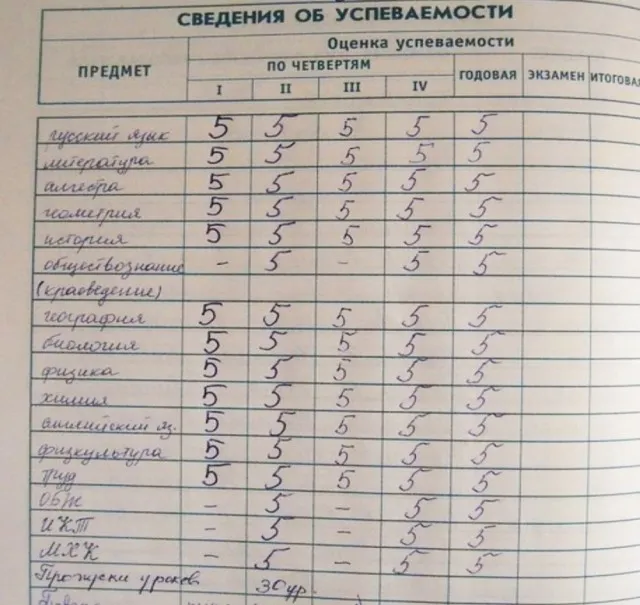 СВЕДЕНИЯ ОБ УСПЕВАЕМОСТИ
Оценка успеваемости
ПРЕДМЕТ ПО ЧЕТВЕРТЯМ ГОДОВАЯ ЭКЗАМЕН ИТОГОВА
I II III IV
русский язык 5 5 5 5 5
литература 5 5 5 5 5
алгебра 5 5 5 5 5
геометрия 5 5 5 5 5
история 5 5 5 5 5
обществознание - 5 - 5 5
(краеведение)
география 5 5 5 5 5
биология 5 5 5 5 5
физика 5 5 5 5 5
химия 5 5 5 5 5
английский яз. 5 5 5 5 5
физкультура 5 5 5 5 5
труд 5 5 5 5 5
ОБЖ - 5 - 5 5
ИКТ - 5 - 5 5
МХК - 5 - 5 5
Пропуски уроков 30 ур.